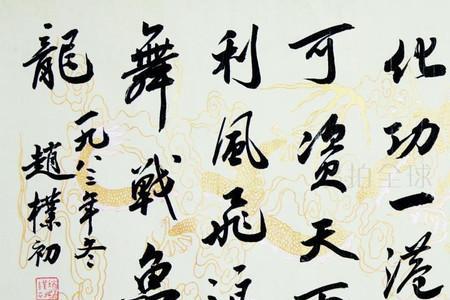 化功一港
可資天
利風飛
舞戰魚
龍
一九八三年冬
趙樸初
拍全球